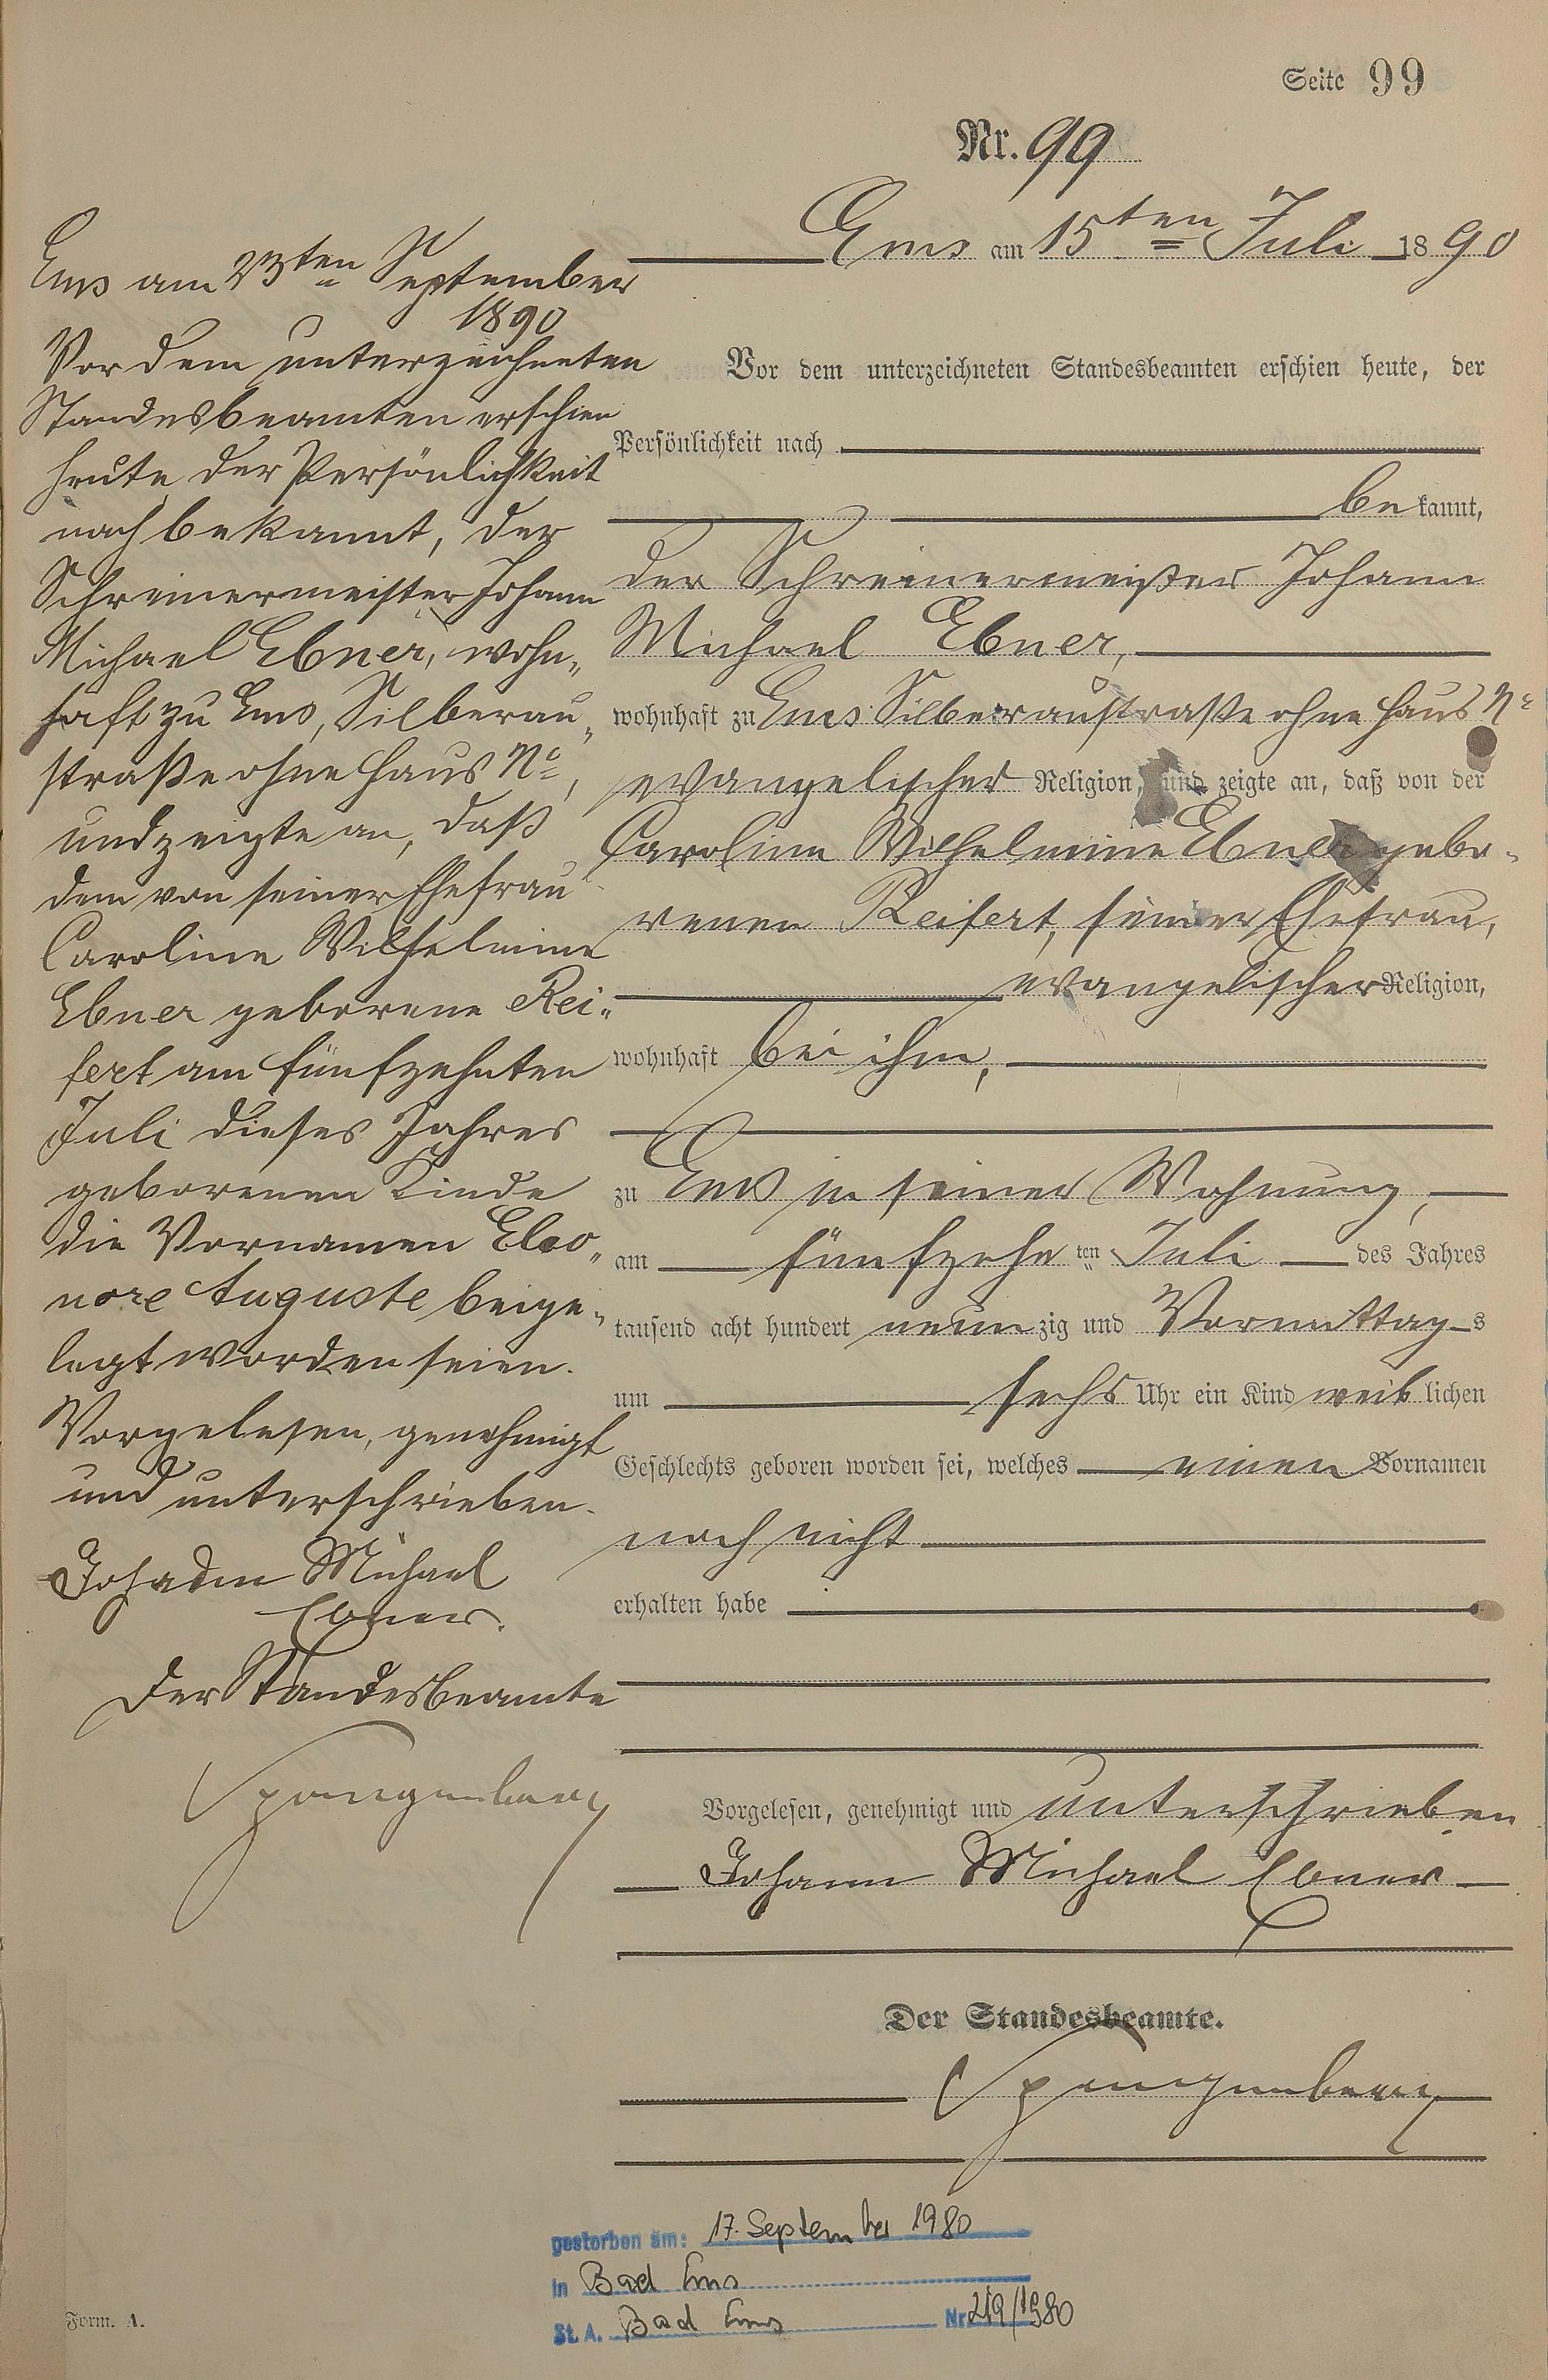 Seite 99
Nr. 99
Ems am 15ten Juli 1890
Vor dem unterzeichneten Standesbeamten erschien heute, der
Persönlichkeit nach
bekannt,
der Schreinermeister Johann
Michael Ebner,
wohnhaft zu Ems Silberaustraße ohne Haus No
evangelischer Religion, und zeigte an, daß von der
Caroline Wilhelmine Ebner gebo-
renen Reifert, seiner Ehefrau,
evangelischer Religion,
wohnhaft bei ihm,
zu Ems in seiner Wohnung,
am fünfzehnten Juli des Jahres
tausend acht hundert neunzig und Vormittags
um sechs Uhr ein Kind weiblichen
Geschlechts geboren worden sei, welches einen Vornamen
noch nicht
erhalten habe
Vorgelesen, genehmigt und unterschrieben
Johann Michael Ebner
Der Standesbeamte.
Spangenberg
Ems am 23ten September
1890
Vor dem unterzeichneten
Standesbeamten erschien
heute der Persönlichkeit
nach bekannt, der
Schreinermeister Johann
Michael Ebner, wohn-
haft zu Ems, Silberau-
straße ohne Haus No,
und zeigte an, daß
dem von seiner Ehefrau
Caroline Wilhelmine
Ebner geborene Rei-
fert am fünfzehnten
Juli dieses Jahres
geborenen Kinde
die Vornamen Eleo-
nore Auguste beige-
legt worden seien.
Vorgelesen, genehmigt
und unterschrieben.
Johann Michael
Ebner.
Der Standesbeamte
Spangenberg
gestorben am: 17. September 1980
in Bad Ems
St. A. Bad Ems Nr. 219/1980
Form. A.